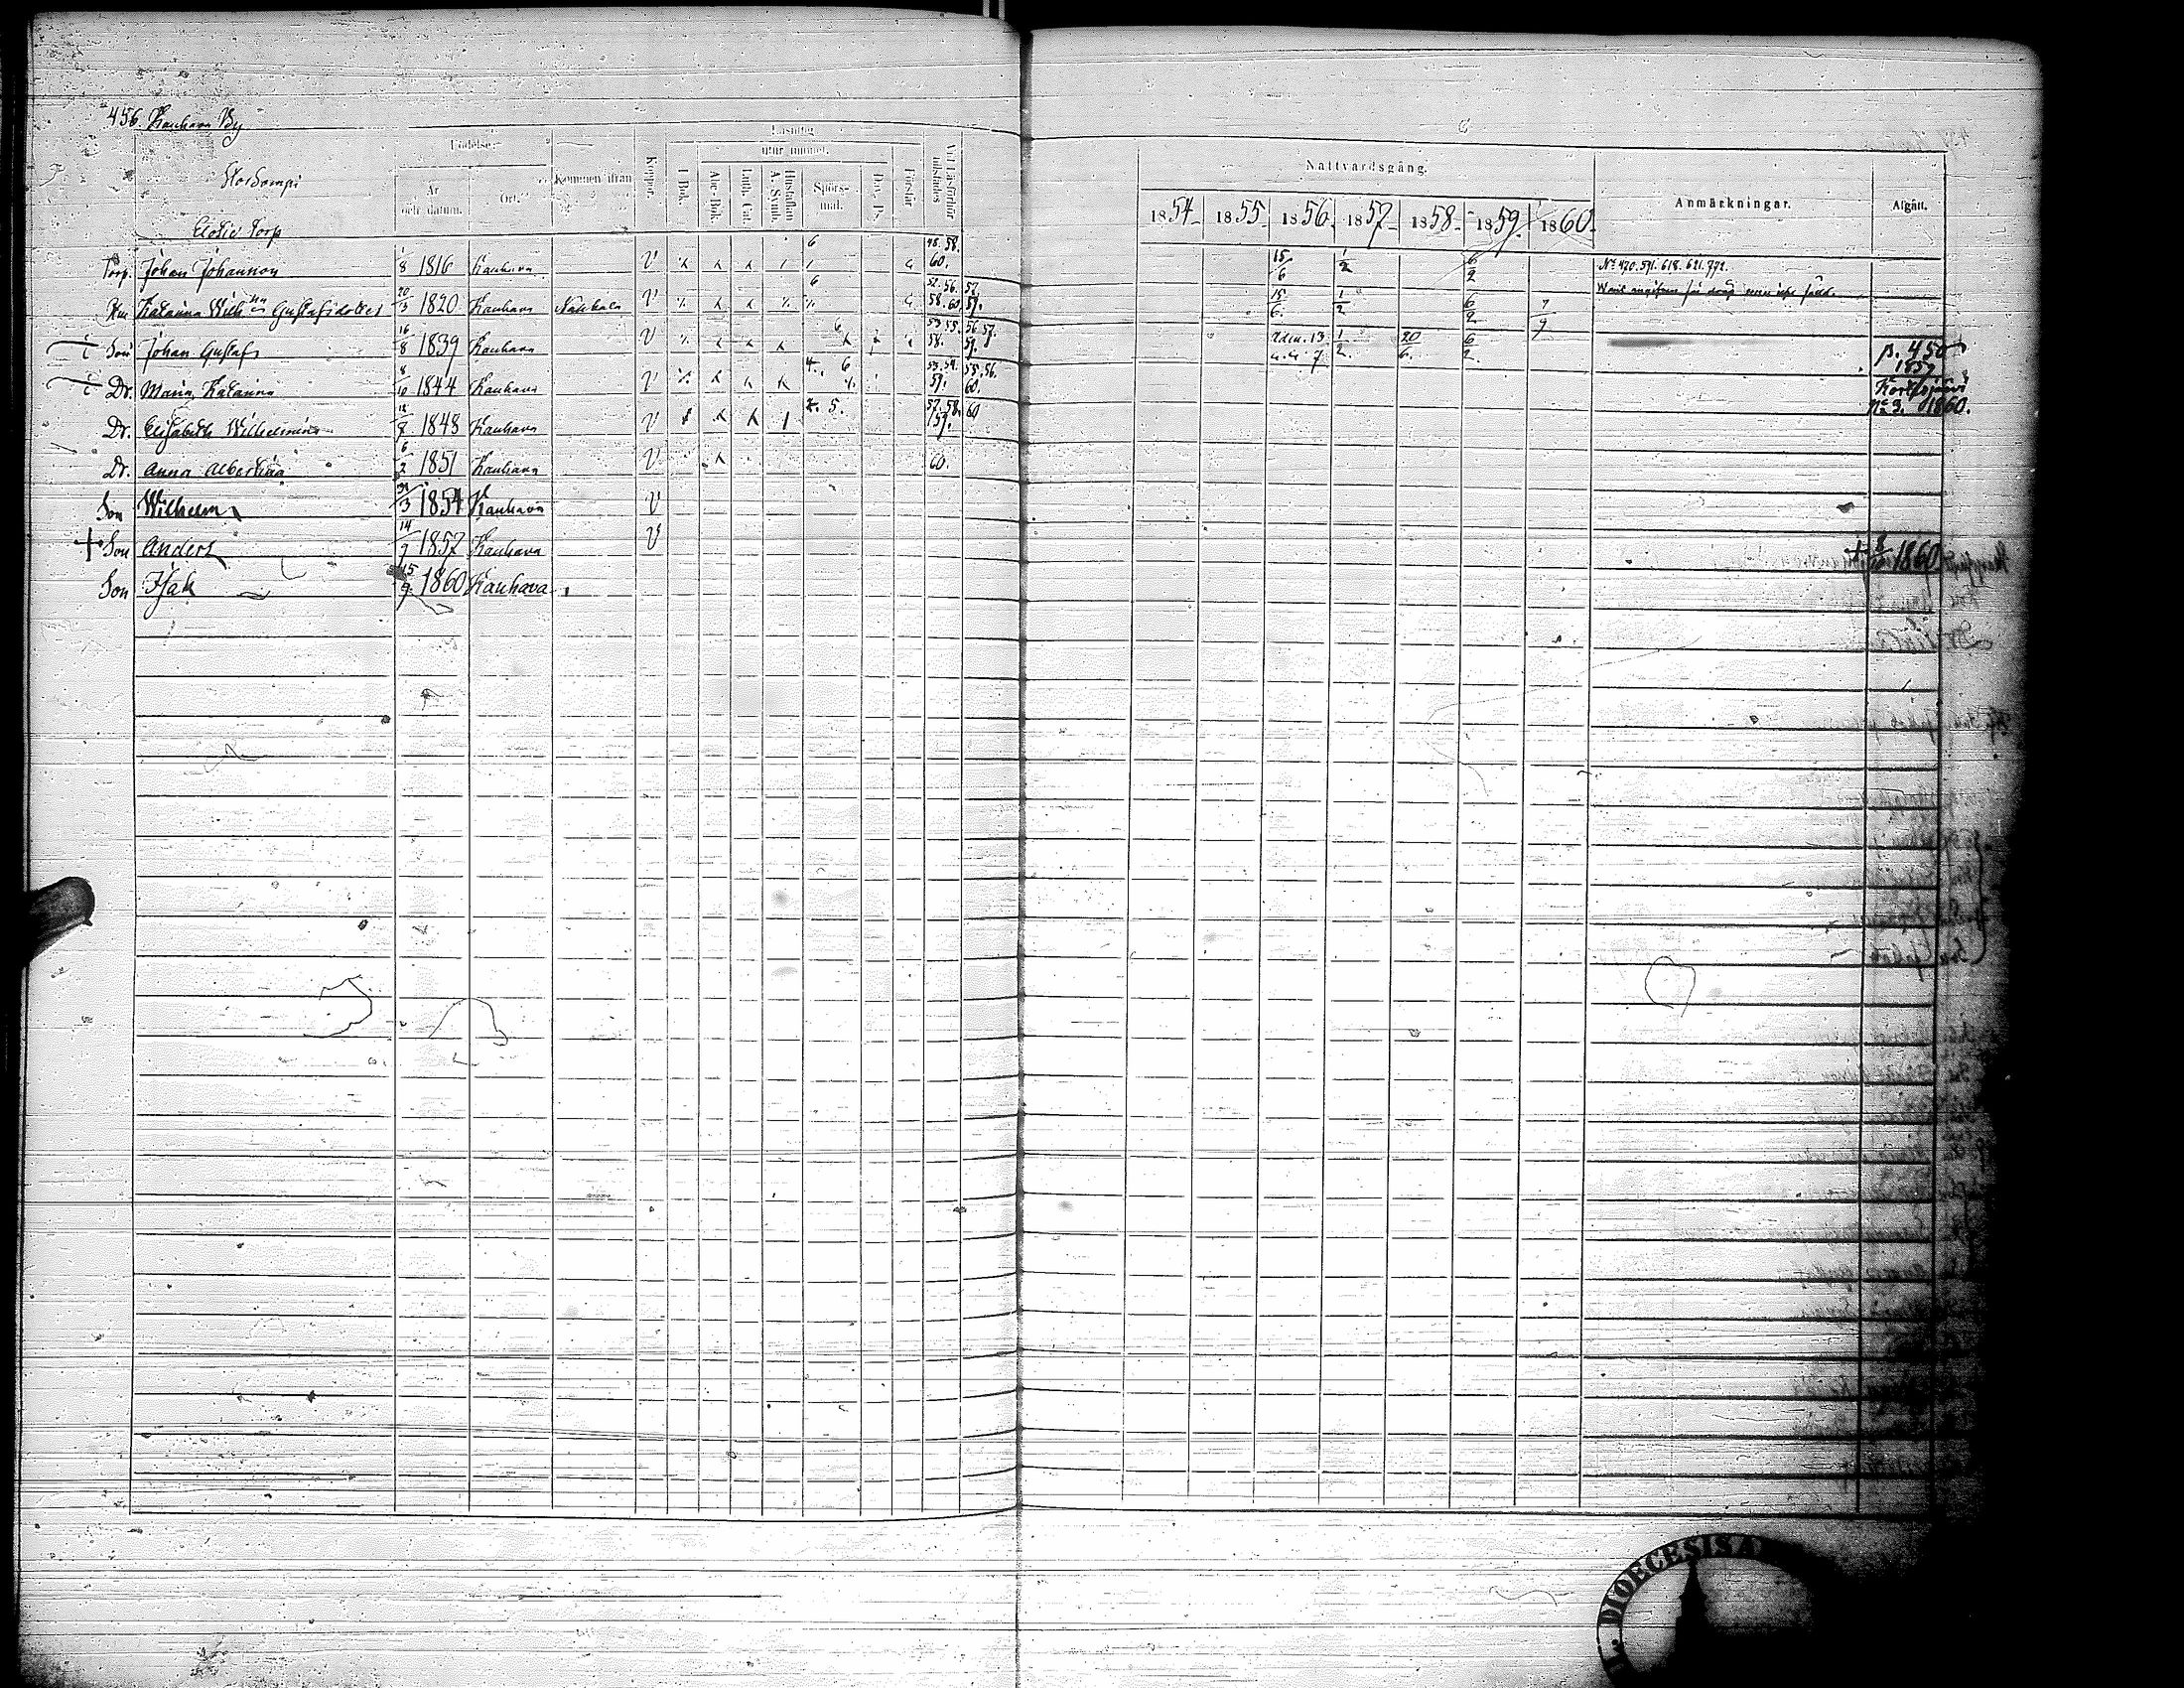 456. Kauhava By
Storsompi
Födelse-
Kommen ifrån
Koppor.
Läsning
utur minnet.
I Bok.
Abc-Bok.
Luth. Cat.
Hustaflan
A. Symb.
Spörs-
mål.
Dav. Ps.
Förstår
Vid Läsförhör
tillstädes
År
och datum.
Ort.
Nattvardsgång.
1854. 1855. 1856. 1857. 1858. 1859. 1860.
Anmärkningar.
Afgått.
Torp
Torp. Johan Johansson 1/8 1816 Kauhava V 6 48. 58. 60. 15/6 1/2 6/2 No 470. 591. 618. 621. 772.
Hu Katarina Wilh:na Gustafsdotter 20/3 1820 Kauhava V 6 52. 56. 57. 58. 60. 59. 15/6 1/2 6/2 7/9
Son Johan Gustaf 16/8 1839 Kauhava V 6 53. 55. 56. 57. 58. 59. 13/7 1/2 20/6 6/2 p. 450 1859
Dr. Maria Katarina 8/10 1844 Kauhava V 4. 6 53. 54. 55. 56. 59. 60. Kortesjärvi No 3. 1860.
Dr. Elisabeth Wilhelmina 12/7 1848 Kauhava V 5. 57. 58. 60 59.
Dr. Anna Albertina 6/2 1851 Kauhava V 60.
Son Wilhelm /3 1854 Kauhava V
+ Son Anders 14/7 1857 Kauhava V + 8/10 1860
Son Isak 15/9 1860 Kauhava
DIOECESIS